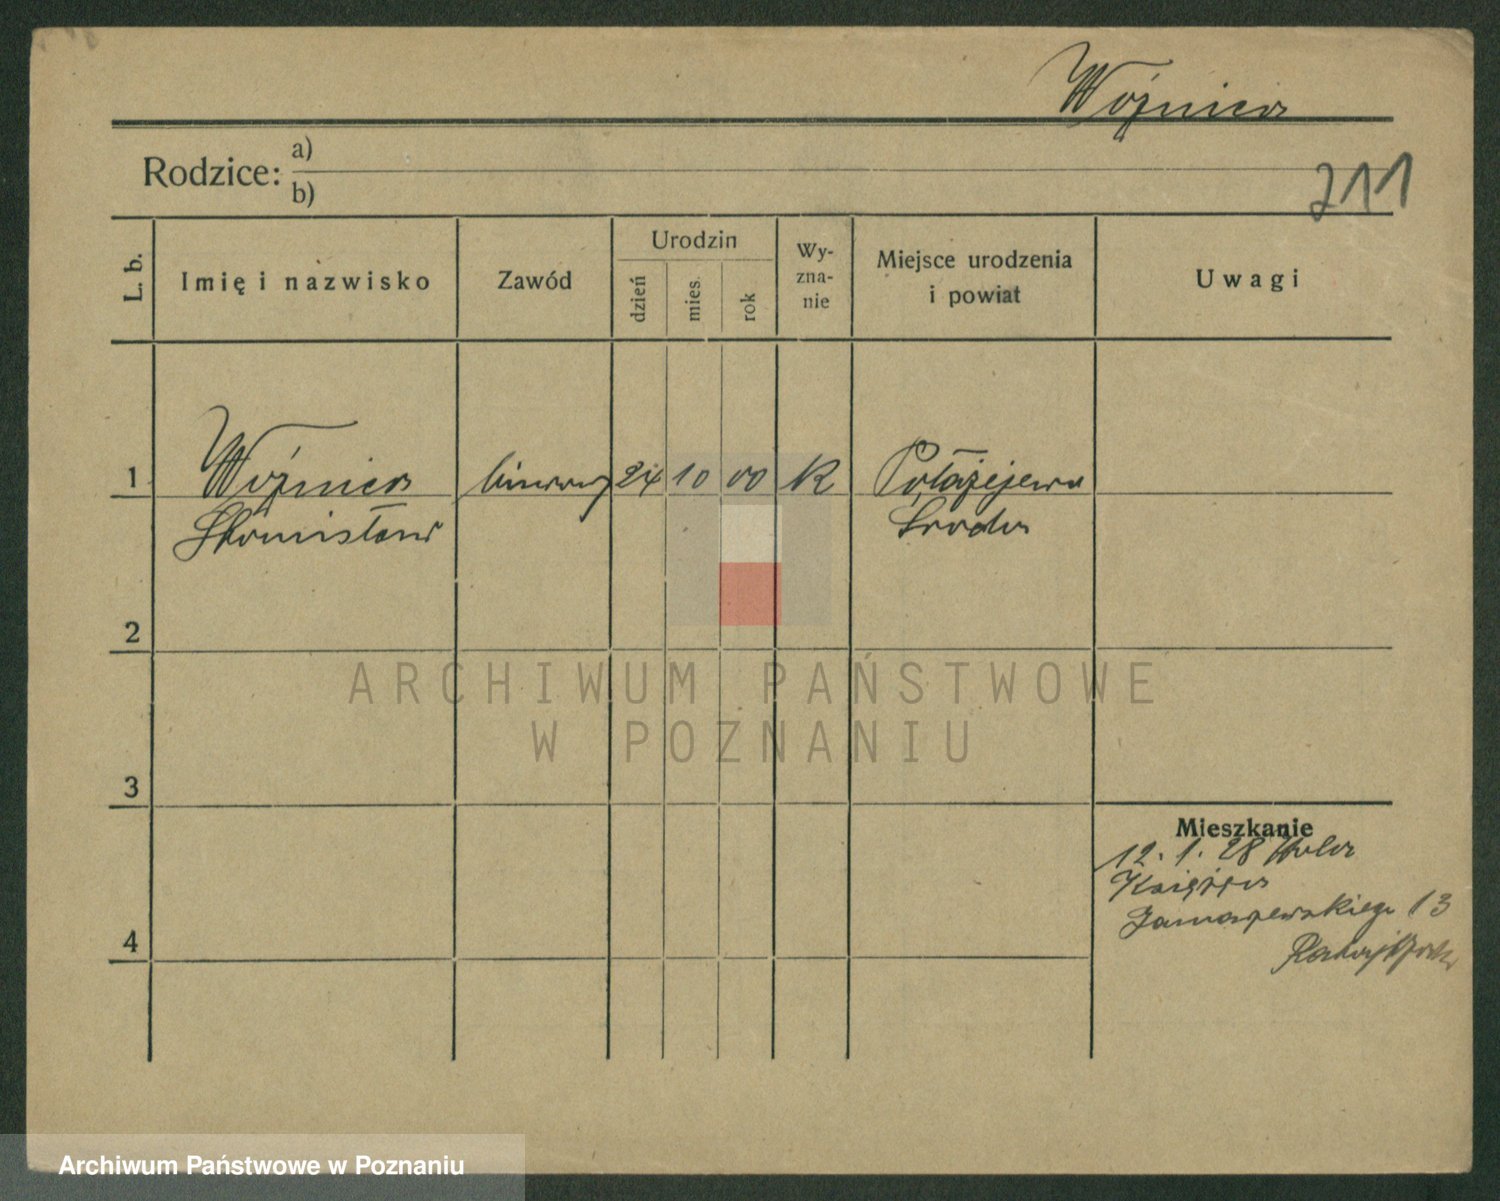 Woźnica
Rodzice: a)
b)
211
L. b.
Imię i nazwisko
Zawód
Urodzin
dzień
mies.
rok
Wy-
zna-
nie
Miejsce urodzenia
i powiat
Uwagi
1
Woźnica 24 10 00 K
Stanisław Środa
2
ARCHIWUM PAŃSTWOWE
W POZNANIU
3
Mieszkanie
12. 1. 28
Księdza
13
4
Archiwum Państwowe w Poznaniu